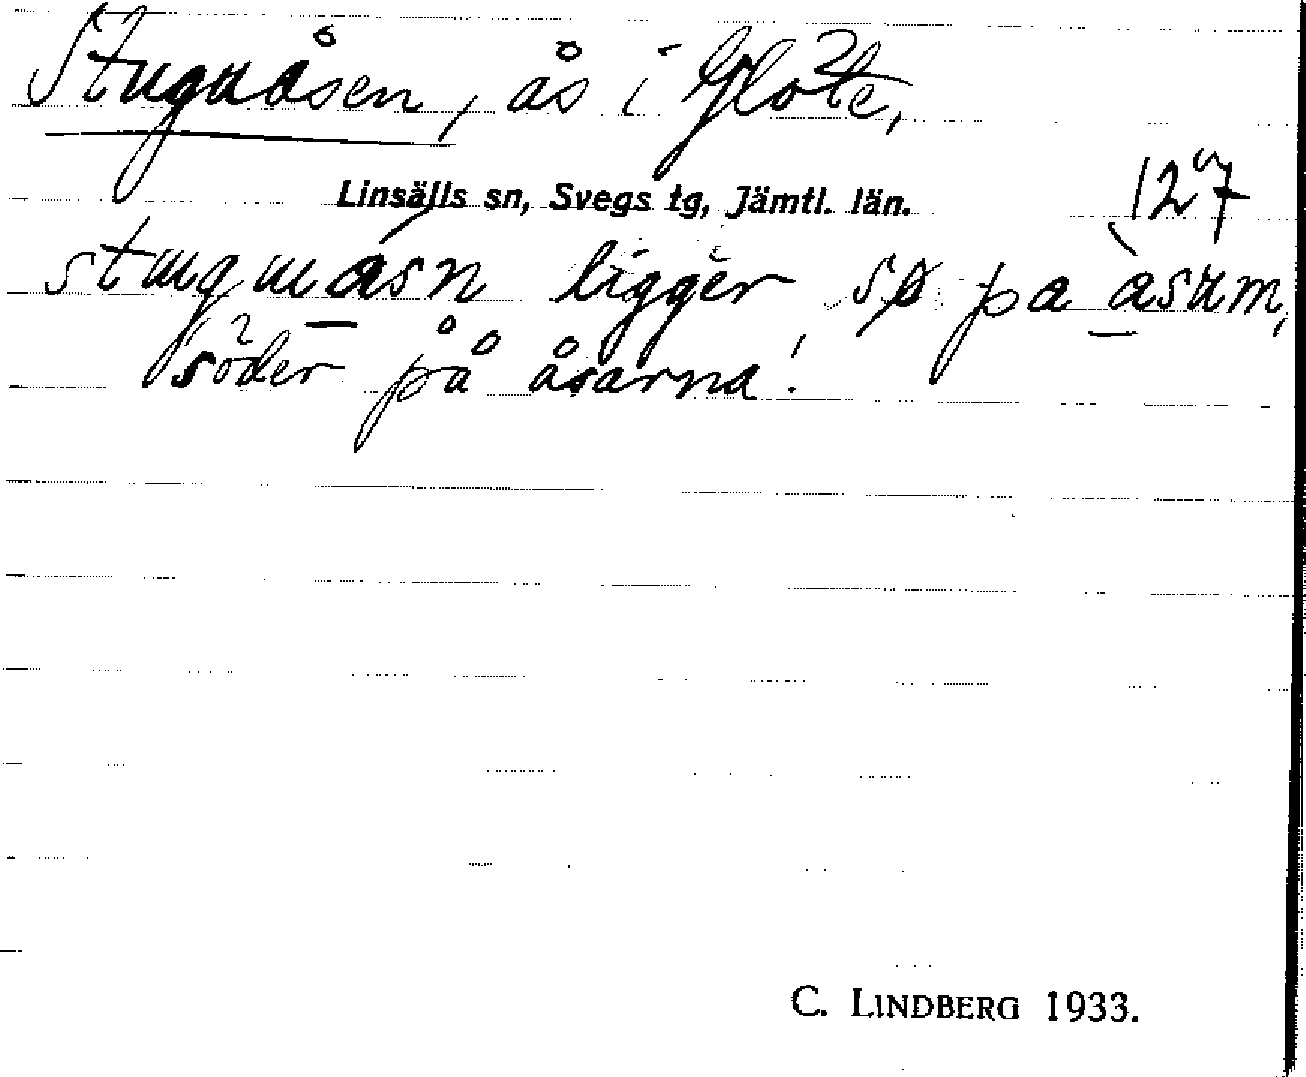 Stuguåsen, ås i Glöte,
Linsälls sn, Svegs tg, Jämtl. län.
127
ligger
söder på åsarna.
C. LINDBERG 1933.